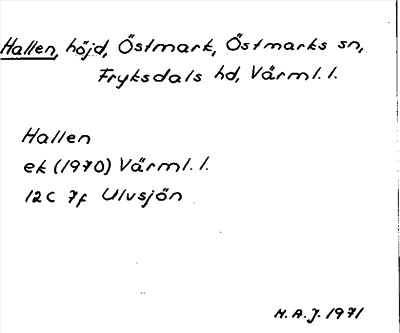 Hallen, höjd, Östmark, Östmarks sn,
Fryksdals hd, Värml. l.
Hallen
ek (1970) Värml. l.
12C 7f Ulvsjön
H.A.J. 1971